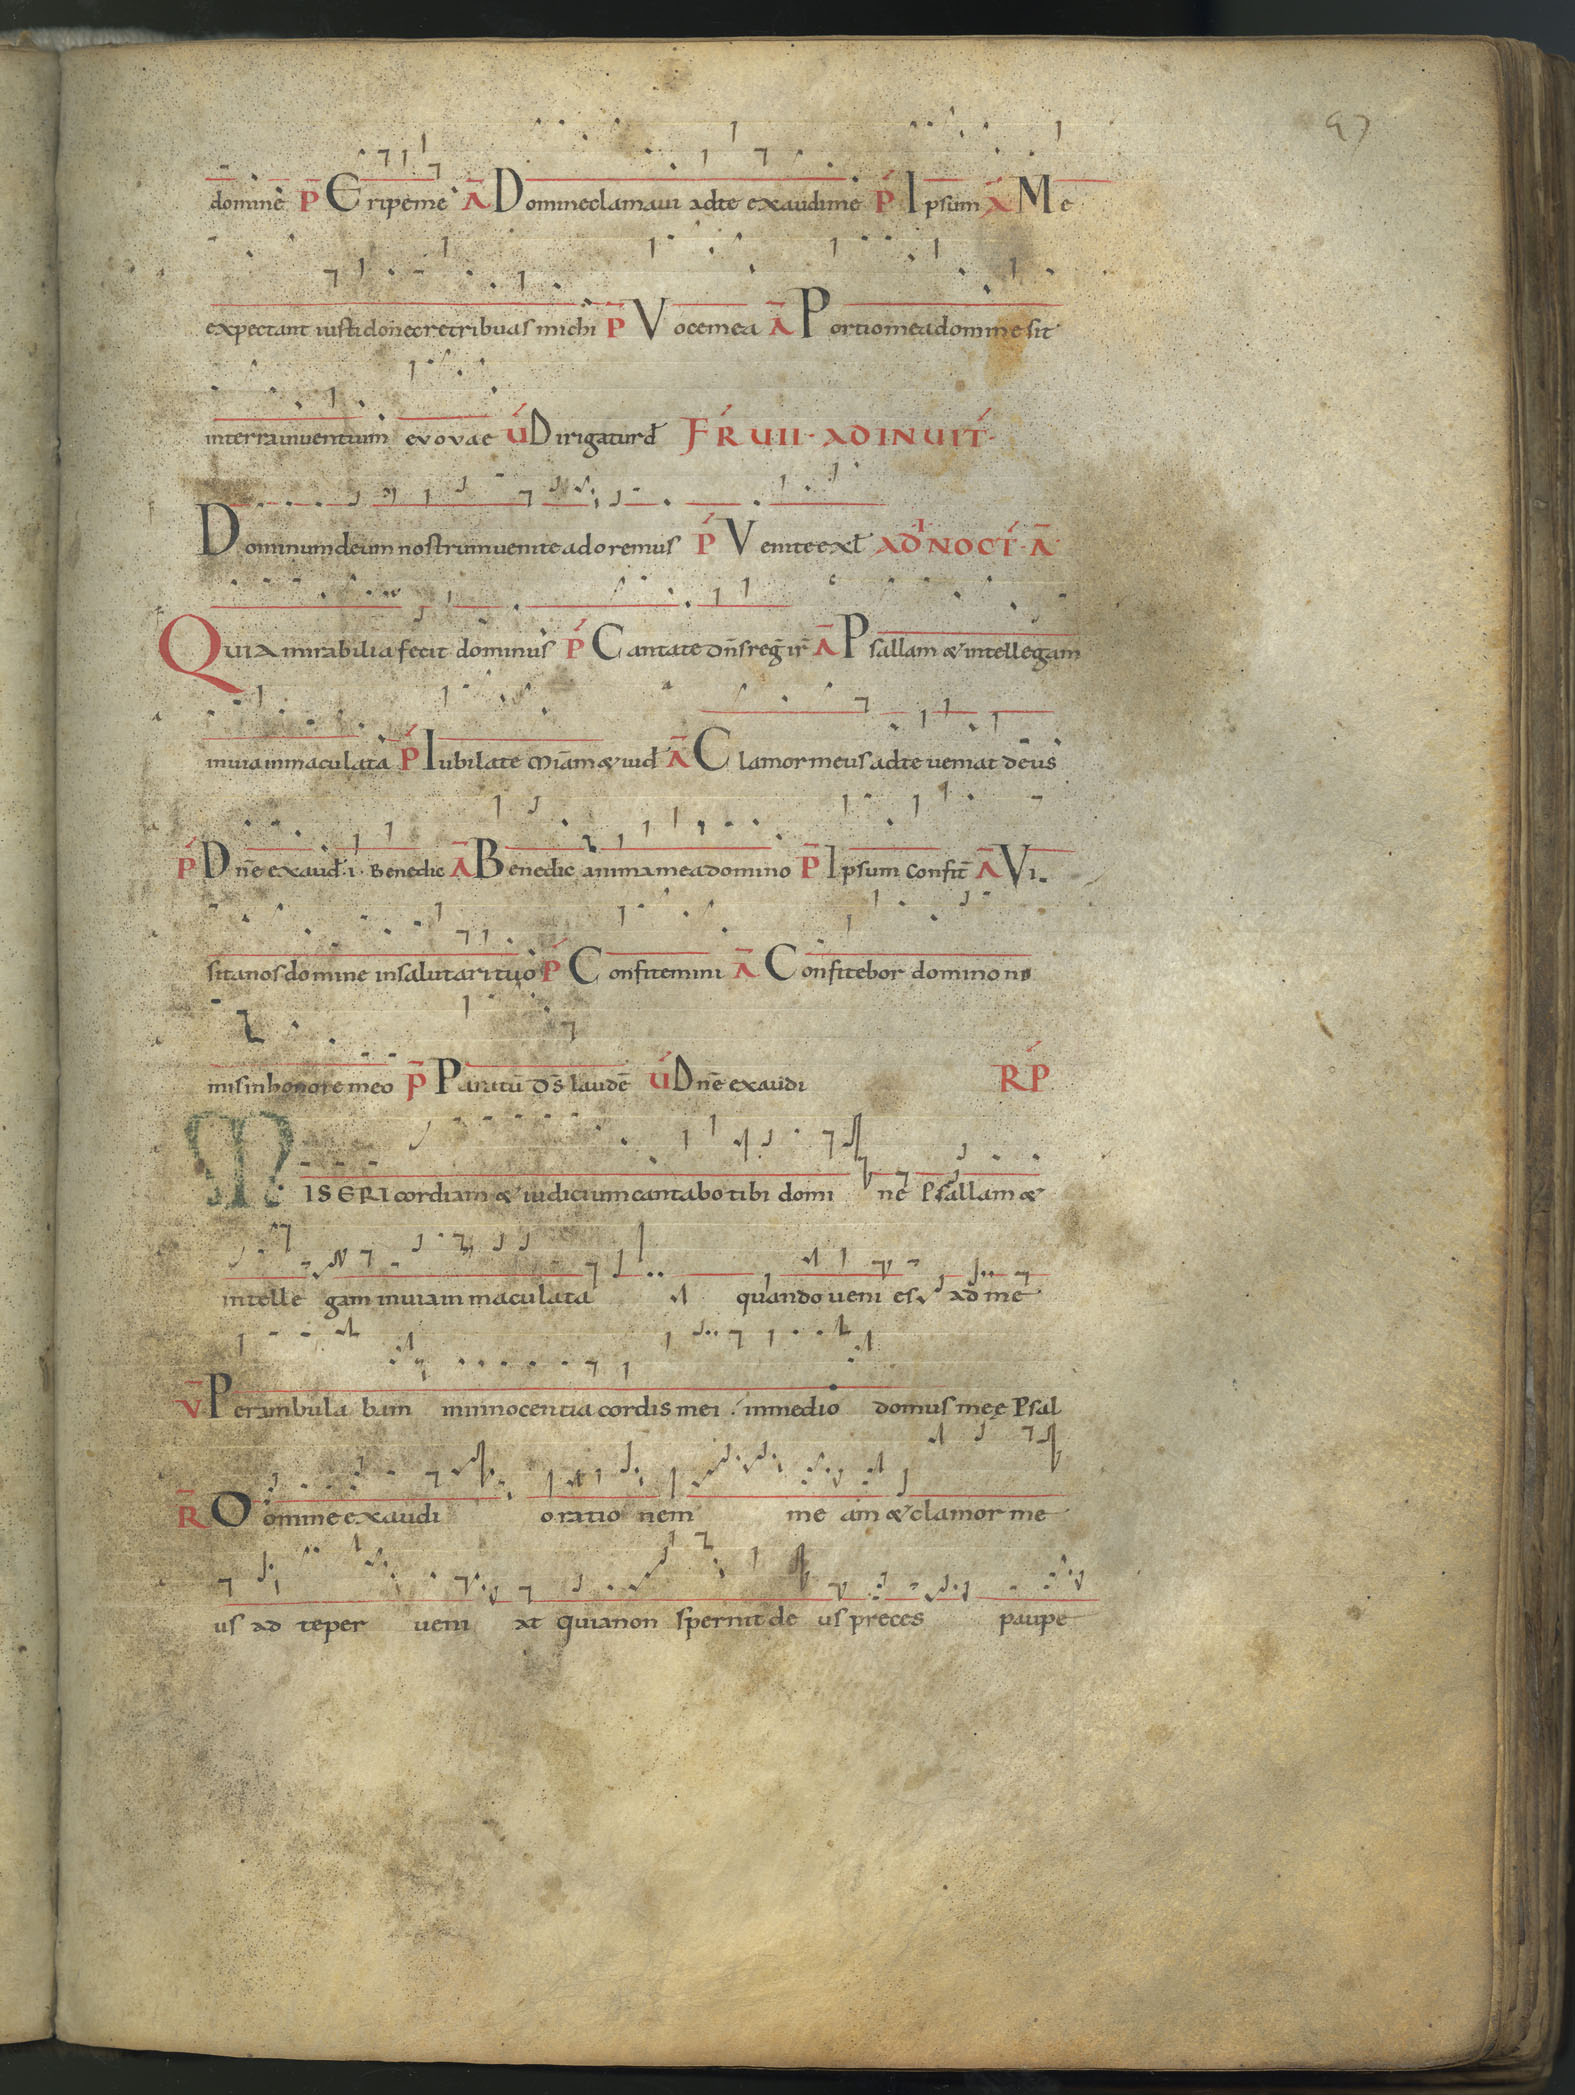 97
domine P̄ Eripeme Ā Domineclamaui adte exaudime P Ipsum Ā Me
expectant iusti donec retribuas michi P Vocemea Ā Portiomeadomine sit
interrauiuentium evovae Ú Dirigaturd̄ FR UII · AD INUIT ·
Dominumdeum nostrumueniteadoremus P Veniteexl̄ AD I NOCT · Ā
Quia mirabilia fecit dominus P Cantate dn̄s reḡ ir̄ Ā Psallam & intellegam
inuiainmaculata P Iubilate Miām & iud̄ Ā Clamormeus adte ueniat deus
P Dn̄e exaud̄ · i · Benedic Ā Benedic animameadomino P̄ Ipsum Confit̄ Ā Vi
sitanosdomine insalutarituo P Confitemini Ā Confitebor domino ni
misinhonore meo P̄ Paratū d̄s laudē Ú Dn̄e exaudi RP
MISERIcordiam & iudicium cantabo tibi domi ne Psallam &
intelle gam inuiam maculata quando ueni es ad me
V̄ Perambula bam ininnocentia cordis mei inmedio domus meę Psal
R̄ Domine exaudi oratio nem me am & clamor me
us ad teper ueni at quianon spernit de us preces paupe